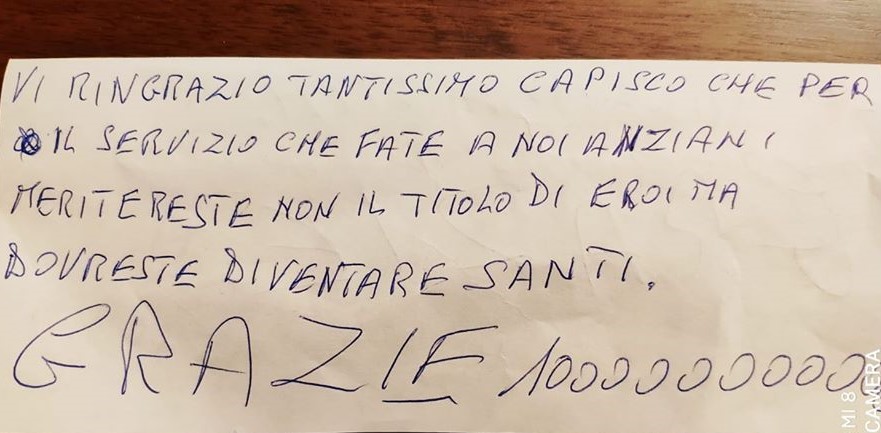 VI RINGRAZIO TANTISSIMO CAPISCO CHE PER
IL SERVIZIO CHE FATE A NOI ANZIANI
MERITERESTE NON IL TITOLO DI EROI MA
DOVRESTE DIVENTARE SANTI.
GRAZIE 10000000000
MI 8
CAMERA